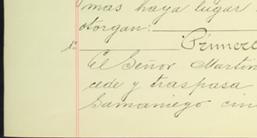 mas haya lugar
otorgan:
Primer
El Señor Martin
cede y traspasa
Samaniego cin